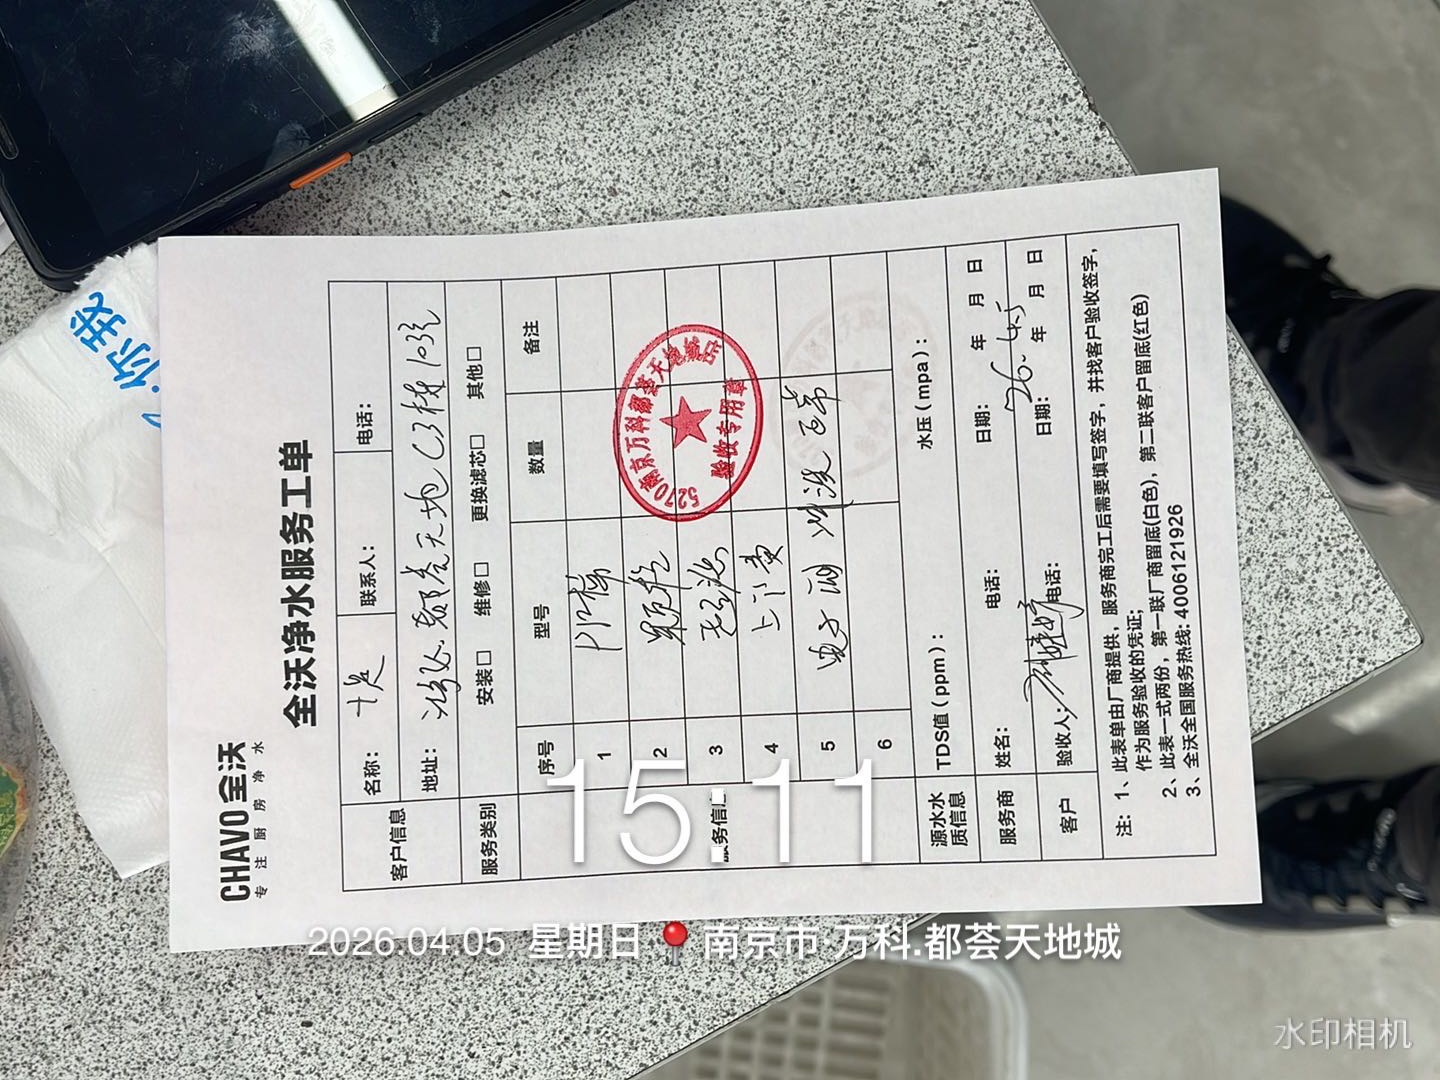 CHAVO全沃
专注厨房净水
全沃净水服务工单
客户信息
名称：
联系人：
电话：
地址：
天地 C3栋 103
服务类别
安装□ 维修□ 更换滤芯□ 其他□
服务信息
序号 型号 数量 备注
1
2
3
4 上门费
5
6
南京万科都荟天地城店
验收专用章
5270
源水水质信息
TDS值（ppm）： 水压（mpa）：
服务商
姓名： 电话： 日期： 年 月 日
客户
验收人： 电话： 日期： 年 月 日
26. 4.5
注：1、此表单由厂商提供，服务商完工后需要填写签字，并找客户验收签字，
作为服务验收的凭证；
2、此表一式两份，第一联厂商留底(白色)，第二联客户留底(红色)
3、全沃全国服务热线: 4006121926
你我
15:11
2026.04.05 星期日 南京市·万科.都荟天地城
水印相机